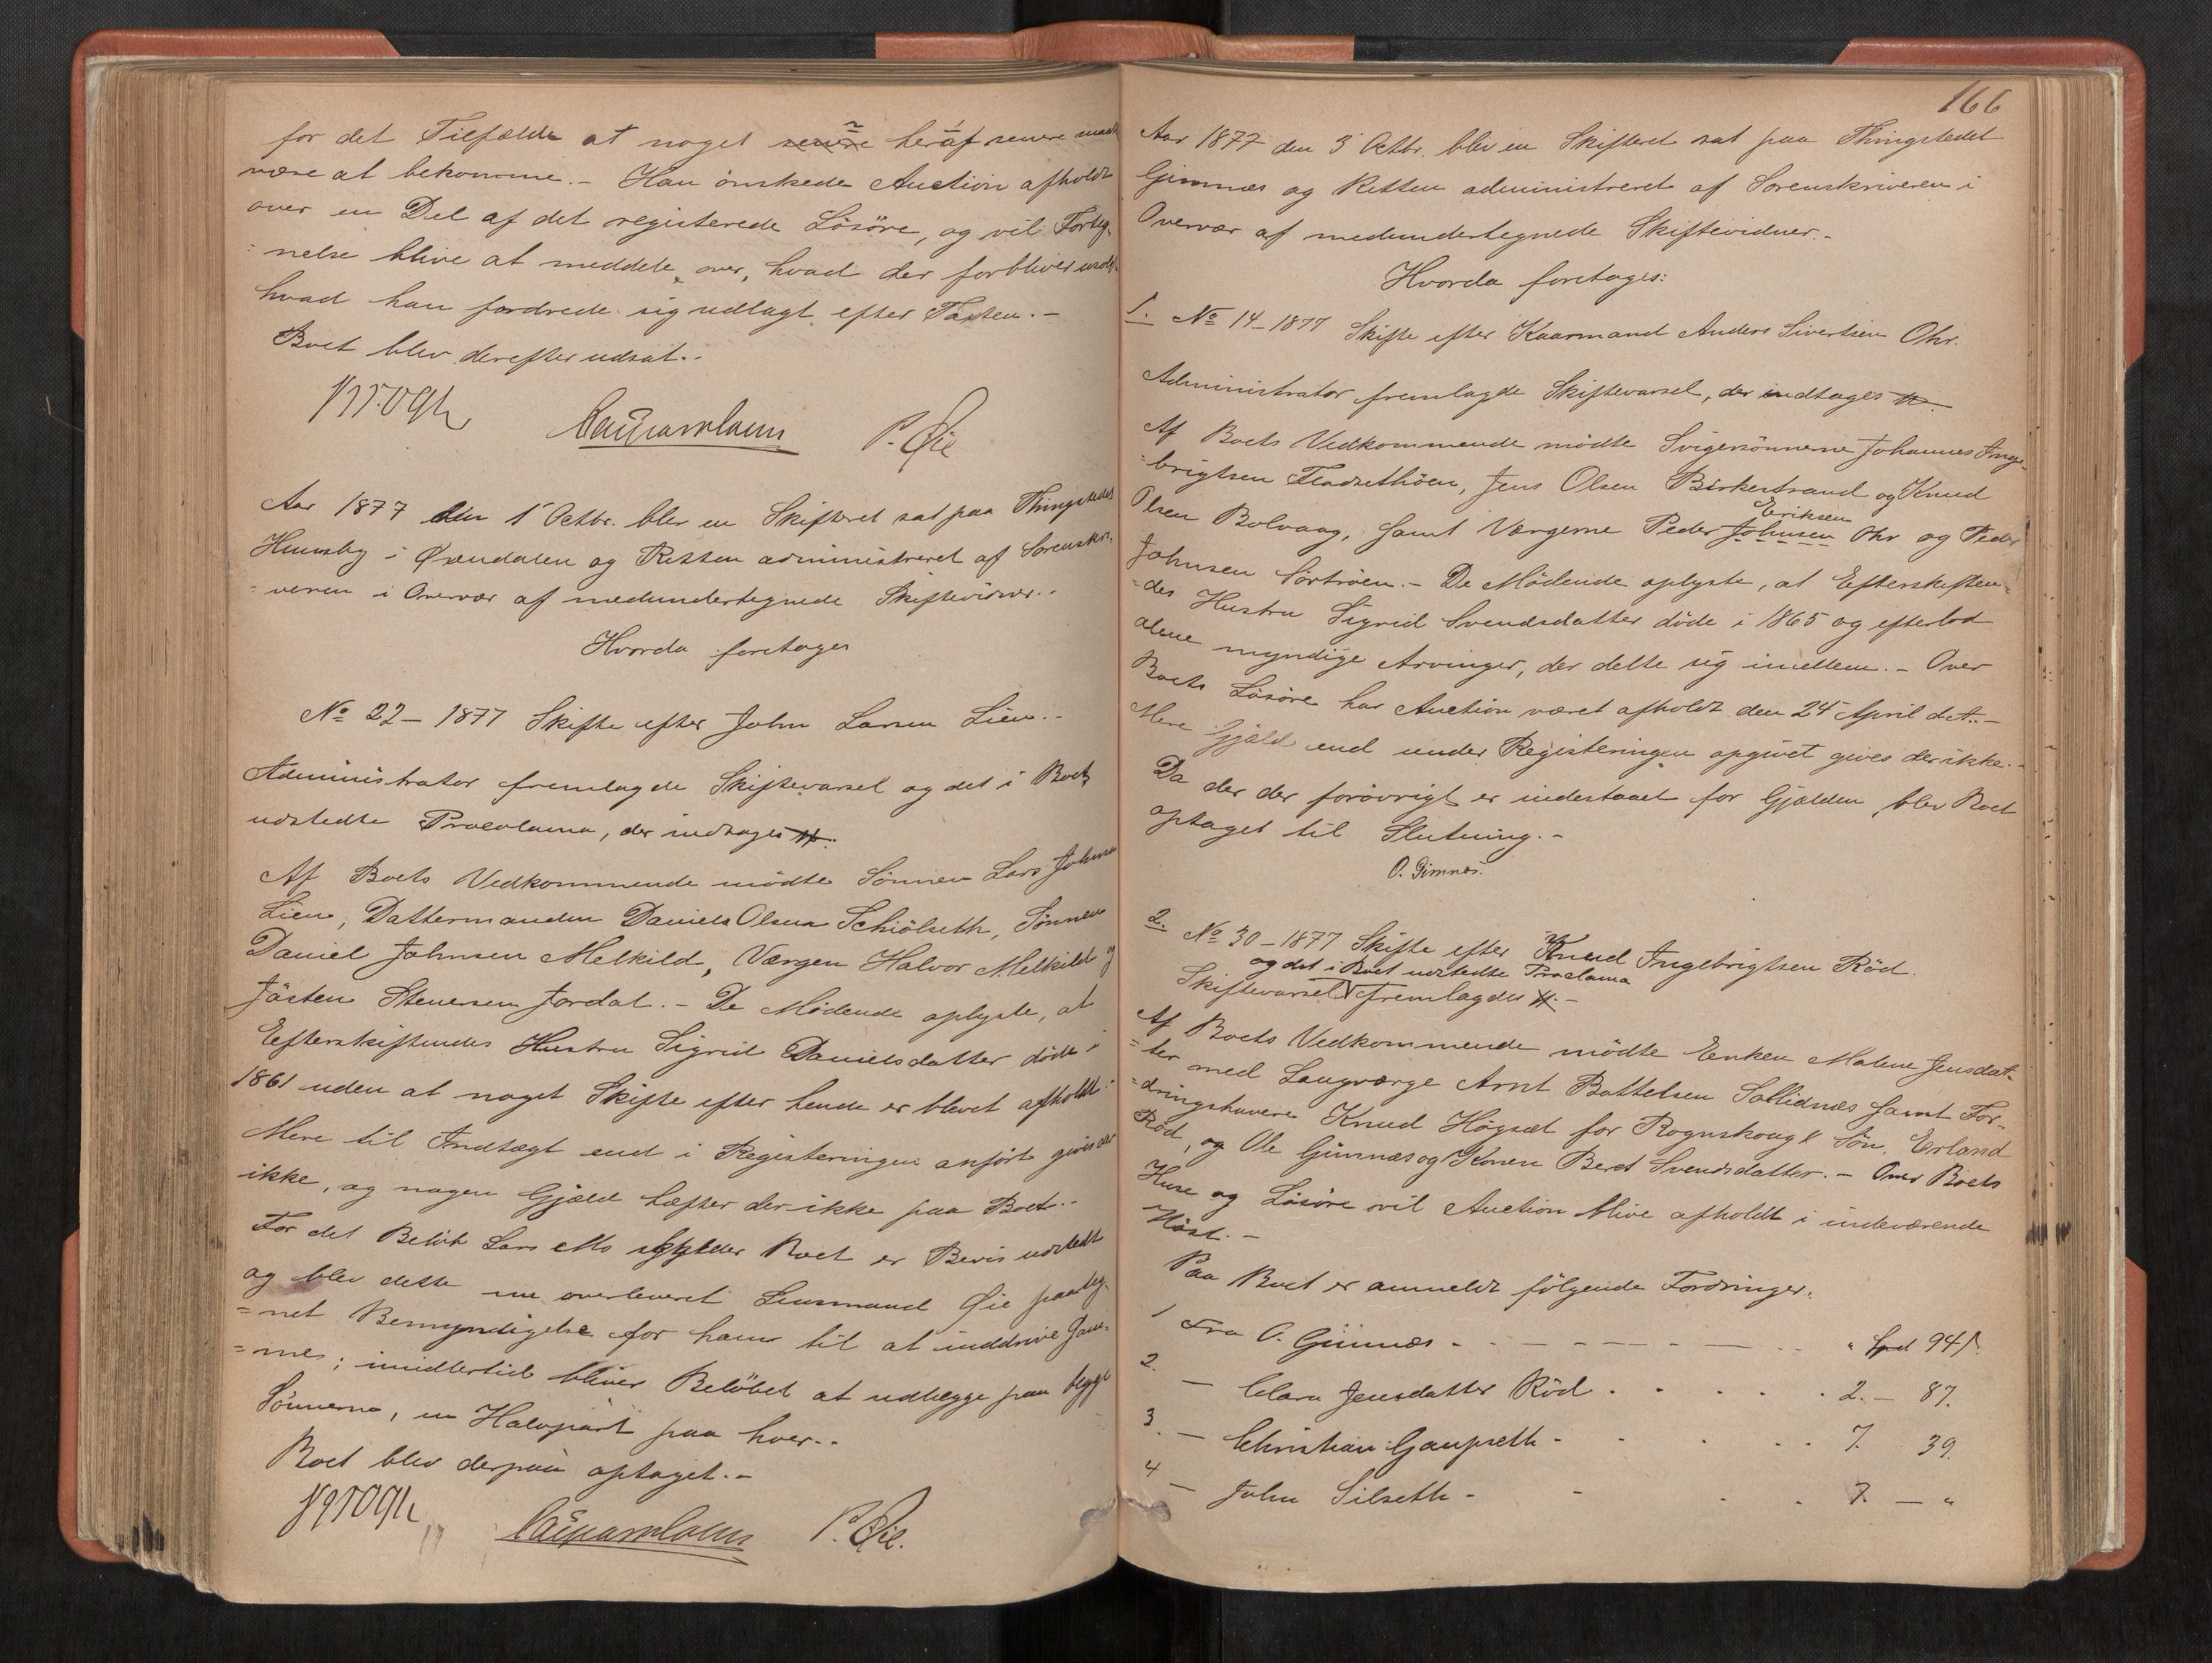 for det Tilfælde at noget senere heraf senere maatte
være at bekomme.- Han ønskede Auction afholdt
over en Del af det registerede Løsøre, og vil Forteg-
=nelse blive at meddele over, hvad der forbliver usolgt
hvad han fordrede sig udlagt efter Taxten.-
Boet blev derefter udsat.-
Krogh P. Øie
Aar 1877 den 1 Octbr. blev en Skifteret sat paa Thingstedet
Huusby i Øxendalen og Retten administreret af Sorenskri-
=veren i Overvær af medundertegnede Skiftevidner.-
Hvorda foretoges
No 22- 1877 Skifte efter John Larsen Lien.-
Administrator fremlagde Skiftevarsel og det i Boet
udstedte Proclama, der indtages #.
Af Boets Vedkommende mødte Sønnen Lars Johnsen
Lien, Dattermanden Daniel Olsen Schiølseth, Sønnen
Daniel Johnsen Melkild, Værgen Halvor Melkild og
Jøsten Steuersen Jordal.- De Mødende oplyste, at
Efterskiftendes Hustru Sigrid Danielsdatter døde i
1861 uden at noget Skifte efter hende er blevet afholdt.-
Mere til Indtægt end i Registeringen anført gives der
ikke, og nogen Gjæld hæfter der ikke paa Boet.-
For det Beløb Lars skylder Boet er Bevis udstedt
og blev dette nu overleveret Lensmand Øie paateg-
=net Bemyndigelse for ham til at inddrive sam-
=me; imidlertid bliver Beløbet at udlægge paa begge
Sønnerne, en Halvpart paa hver.-
Boet blev derpaa optaget.-
Krogh P. Øie.
166
Aar 1877 den 3 Octbr. blev en Skifteret sat paa Thingstedet
Gimnæs og Retten administreret af Sorenskriveren i
Overvær af medundertegnede Skiftevidner.-
Hvorda foretoges:
1. No 14-1877 Skifte efter Kaarmand Anders Sivertsen Ohr.
Administrator fremlagde Skiftevarsel, der indtages #.
Af Boets Vedkommende mødte Svigersønnerne Johannes Inge-
=brigtsen Fladsethøen, Jens Olsen Birkestrand og Knud
Eriksen
Olsen Bolvaag, samt Værgerne Peder Johnsen Ohr og Peder
Johnsen Sørtrøen.- De Mødende oplyste, at Efterskiften-
=des Hustru Sigrid Svendsdatter døde i 1865 og efterlod
alene myndige Arvinger, der delte sig imellem.- Over
Boets Løsøre har Auction været afholdt den 24 April d.A.-
Mere Gjæld end under Registeringen opgivet gives der ikke.-
Da der der forøvrigt er indestaaet for Gjælden, blev Boet
optaget til Slutning.-
O. Gimnæs.
2. No 30-1877 Skifte efter Knud Ingebrigtsen Rød.
og det i Boet udstedte Proclama
Skiftevarsel fremlagdes #.-
Af Boets Vedkommende mødte Enken Malene Jensdat-
=ter med Laugværge Arnt Bottelsen Sollidnæs samt For-
=dringshavere Knud Høgset for Rognskoug & Søn, Erland
Rød, og Ole Gimnæs og Konen Beret Svendsdatter.- Over Boets
Huse og Løsøre vil Auction blive afholdt i indeværende
Høst.-
Paa Boet er anmeldt følgende Fordringer.
1 Fra O. Gimnæs - " Spd 94 ß.
2. - Clara Jensdatter Rød . 2. - 87.
3. - Christian Gaupseth - 7. 39.
4 - John Silseth - 7. - "